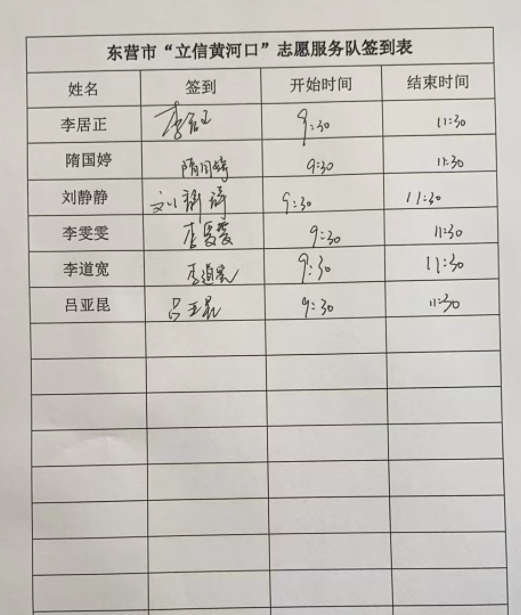 东营市“立信黄河口”志愿服务队签到表
姓名 签到 开始时间 结束时间
李居正 李居正 9:30 11:30
隋国婷 隋国婷 9:30 11:30
刘静静 刘静静 9:30 11:30
李雯雯 李雯雯 9:30 11:30
李道宽 李道宽 9:30 11:30
吕亚昆 吕亚昆 9:30 11:30